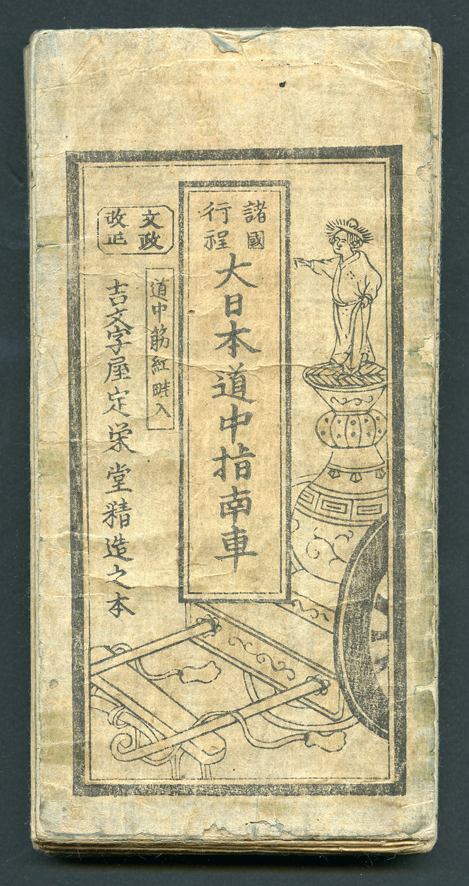 諸國
行程
大日本道中指南車
文政
改正
道中筋紅畔入
吉文字屋定栄堂精造之本